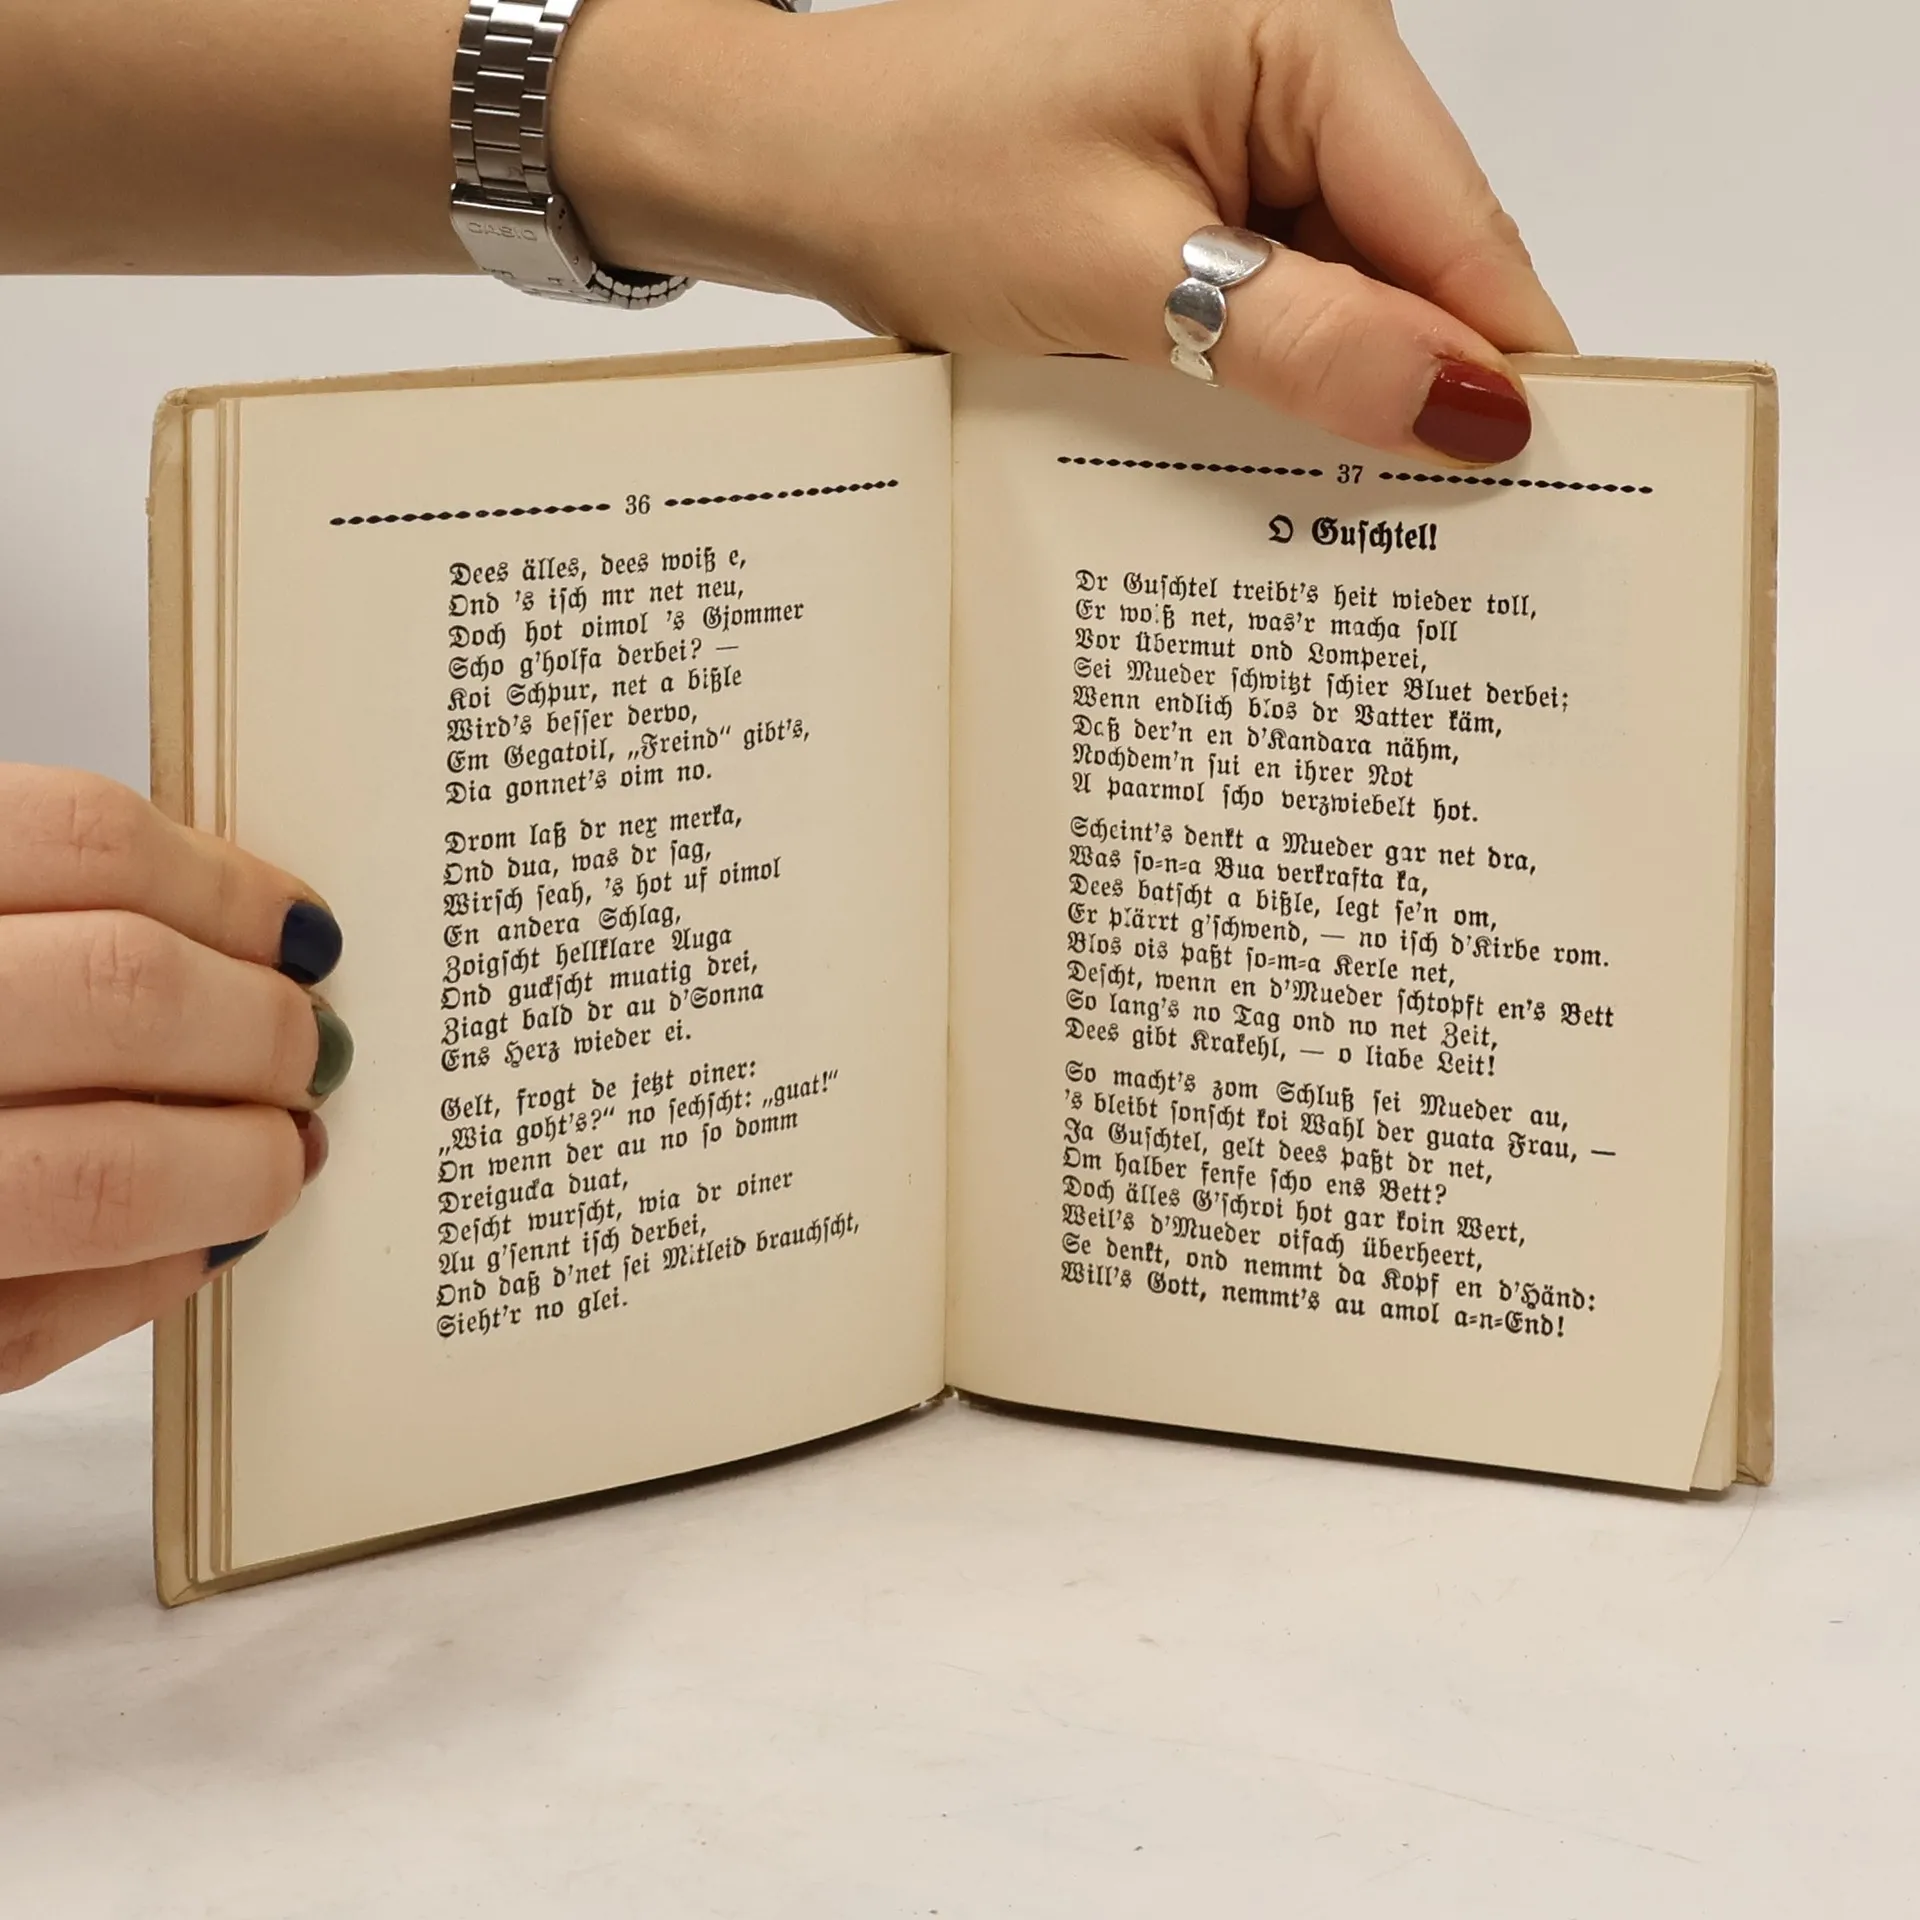 CASIO
36
Dees älles, dees woiß e,
Ond 's isch mr net neu,
Doch hot oimol 's Gjommer
Scho g'holfa derbei? —
Koi Schpur, net a bißle
Wird's besser dervo,
Em Gegatoil, „Freind“ gibt's,
Dia gonnet's oim no.
Drom laß dr nex merka,
Ond dua, was dr sag,
Wirsch seah, 's hot uf oimol
En andera Schlag,
Zoigscht hellklare Auga
Ond guckscht muatig drei,
Ziagt bald dr au d'Sonna
Ens Herz wieder ei.
Gelt, frogt de jetzt oiner:
„Wia goht's?“ no sechscht: „guat!“
On wenn der au no so domm
Dreigucka duat,
Descht wurscht, wia dr oiner
Au g'sennt isch derbei,
Ond daß d'net sei Mitleid brauchscht,
Sieht'r no glei.
37
O Guschtel!
Dr Guschtel treibt's heit wieder toll,
Er woiß net, was'r macha soll
Vor Übermut ond Lomperei,
Sei Mueder schwitzt schier Bluet derbei;
Wenn endlich blos dr Vatter käm,
Daß der'n en d'Kandara nähm,
Nochdem'n sui en ihrer Not
A paarmol scho verzwiebelt hot.
Scheint's denkt a Mueder gar net dra,
Was so-n-a Bua verkrafta ka,
Dees batscht a bißle, legt se'n om,
Er plärrt g'schwend, — no isch d'Kirbe rom.
Blos ois paßt so-m-a Kerle net,
Descht, wenn en d'Mueder schtopft en's Bett
So lang's no Tag ond no net Zeit,
Dees gibt Krakehl, — o liabe Leit!
So macht's zom Schluß sei Mueder au,
's bleibt sonscht koi Wahl der guata Frau, —
Ja Guschtel, gelt dees paßt dr net,
Om halber fenfe scho ens Bett?
Doch älles G'schroi hot gar koin Wert,
Weil's d'Mueder oifach überheert,
Se denkt, ond nemmt da Kopf en d'Händ:
Will's Gott, nemmt's au amol a-n-End!